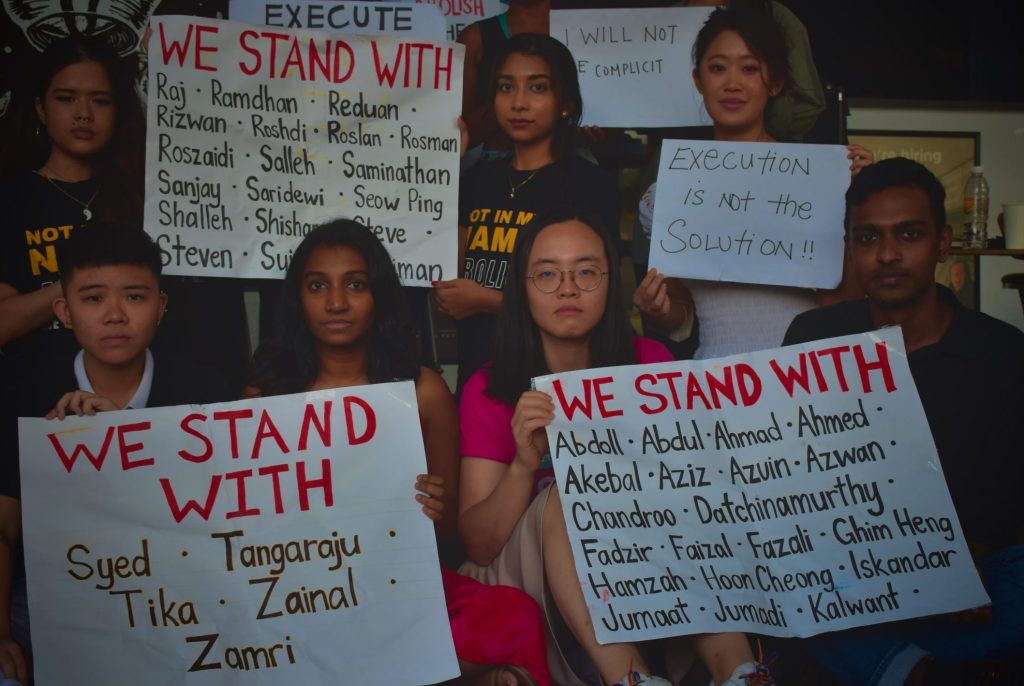 EXECUTE
ABOLISH
WE STAND WITH
Raj · Ramdhan · Reduan ·
Rizwan · Roshdi · Roslan · Rosman
Roszaidi · Salleh · Saminathan
Sanjay · Saridewi · Seow Ping
Shalleh · Shisham Steve ·
Steven
I WILL NOT
COMPLICIT
EXECUTION
IS NOT the
SOLUTION!!
we're hiring
NOT
NOT IN MY
NAM
WE STAND
WITH
Syed · Tangaraju ·
Tika · Zainal ·
Zamri
WE STAND WITH
Abdoll · Abdul · Ahmad · Ahmed ·
Akebal · Aziz · Azuin · Azwan ·
Chandroo · Datchinamurthy ·
Fadzir · Faizal · Fazali · Ghim Heng
Hamzah · Hoon Cheong · Iskandar
Jumaat · Jumadi · Kalwant ·